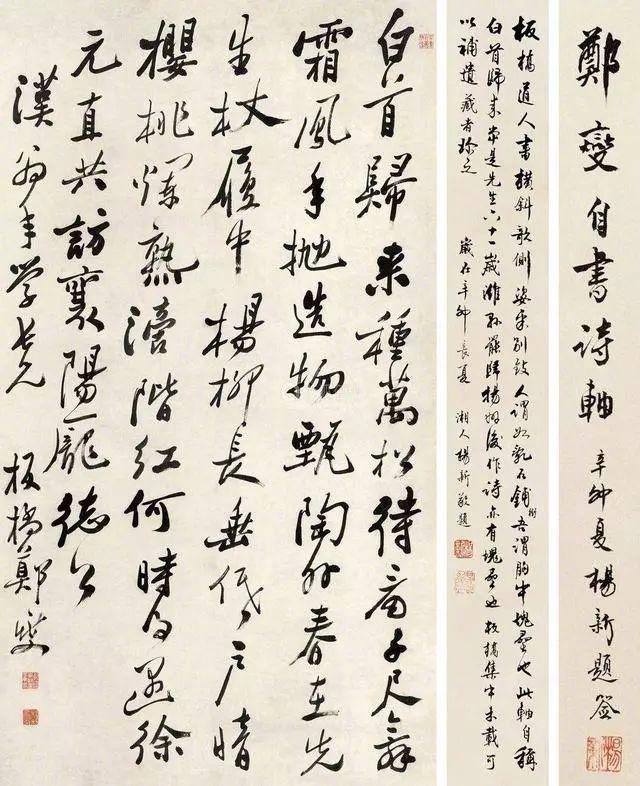 鄭燮自書詩軸 辛卯夏楊新題簽
板橋道人書橫斜欹側姿采別致人謂如亂石鋪街吾謂胸中塊壘也此軸自稱
白首歸來當是先生六十一歲濰縣罷歸揚州後作詩亦有塊壘也板橋集中未載可
以補遺藏者珍之 歲在辛卯長夏 湘人楊新敬題
白首歸來種萬松待看千尺舞
霜風年拋造物甄陶外春在先
生杖履中楊柳長垂低戶暗
櫻桃爛熟滴階紅何時遇徐
元直共訪襄陽龐德公
漢翁年學長兄 板橋鄭燮